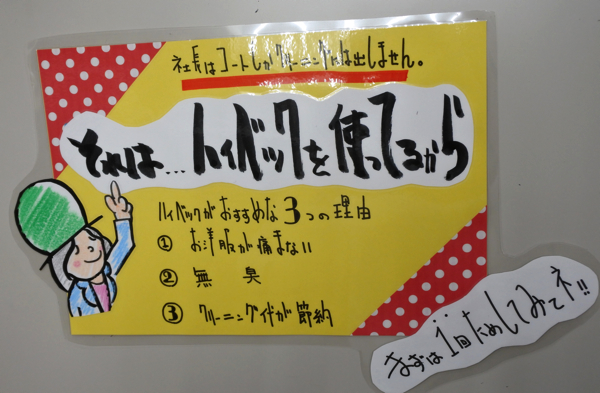 社長はコートしかクリーニングには出しません。
それは…ハイベックを使ってるから
ハイベックがおすすめな3つの理由
① お洋服が痛まない
② 無臭
③ クリーニング代が節約
まずは1回ためしてみてネ!!